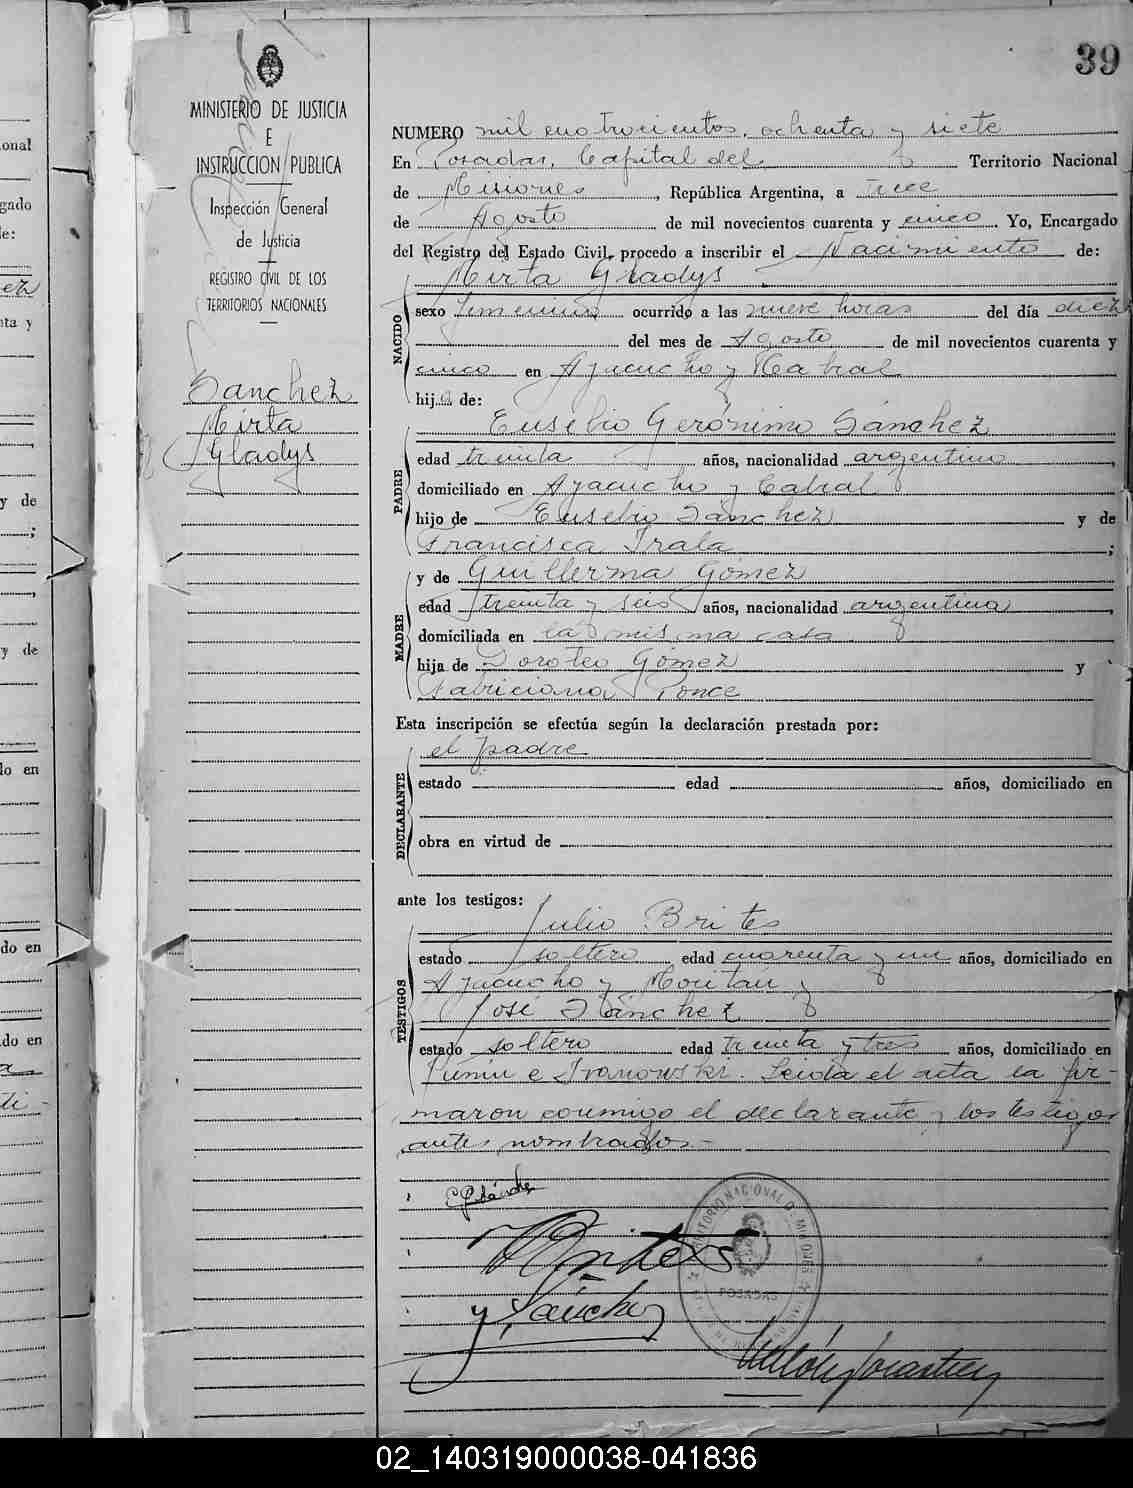 39
MINISTERIO DE JUSTICIA
E
INSTRUCCION PUBLICA
Inspección General
de Justicia
REGISTRO CIVIL DE LOS
TERRITORIOS NACIONALES
Sanchez
Mirta
Gladys
NUMERO mil cuatrocientos, ochenta y siete
En Posadas, Capital del Territorio Nacional
de Misiones, República Argentina, a trece
de Agosto de mil novecientos cuarenta y cinco. Yo, Encargado
del Registro del Estado Civil, procedo a inscribir el Nacimiento de:
Mirta Gladys
NACIDO
sexo femenino ocurrido a las nueve horas del día diez
del mes de Agosto de mil novecientos cuarenta y
cinco en Ayacucho y Cabral
hija de:
Eusebio Gerónimo Sánchez
PADRE
edad treinta años, nacionalidad argentino,
domiciliado en Ayacucho y Cabral
hijo de Eusebio Sánchez y de
Francisca Irala;
y de Guillerma Gómez
MADRE
edad treinta y seis años, nacionalidad argentina,
domiciliada en la misma casa
hija de Doroteo Gómez y
Fabriciana Ponce
Esta inscripción se efectúa según la declaración prestada por:
el padre
DECLARANTE
estado edad años, domiciliado en
obra en virtud de
ante los testigos:
Julio Brites
TESTIGOS
estado soltero edad cuarenta y un años, domiciliado en
Ayacucho y
José Sánchez
estado soltero edad treinta y tres años, domiciliado en
Junin e Ivanowski. Leida el acta la fir-
maron conmigo el declarante y los testigos
antes nombrados.-
POSADAS
02_140319000038-041836